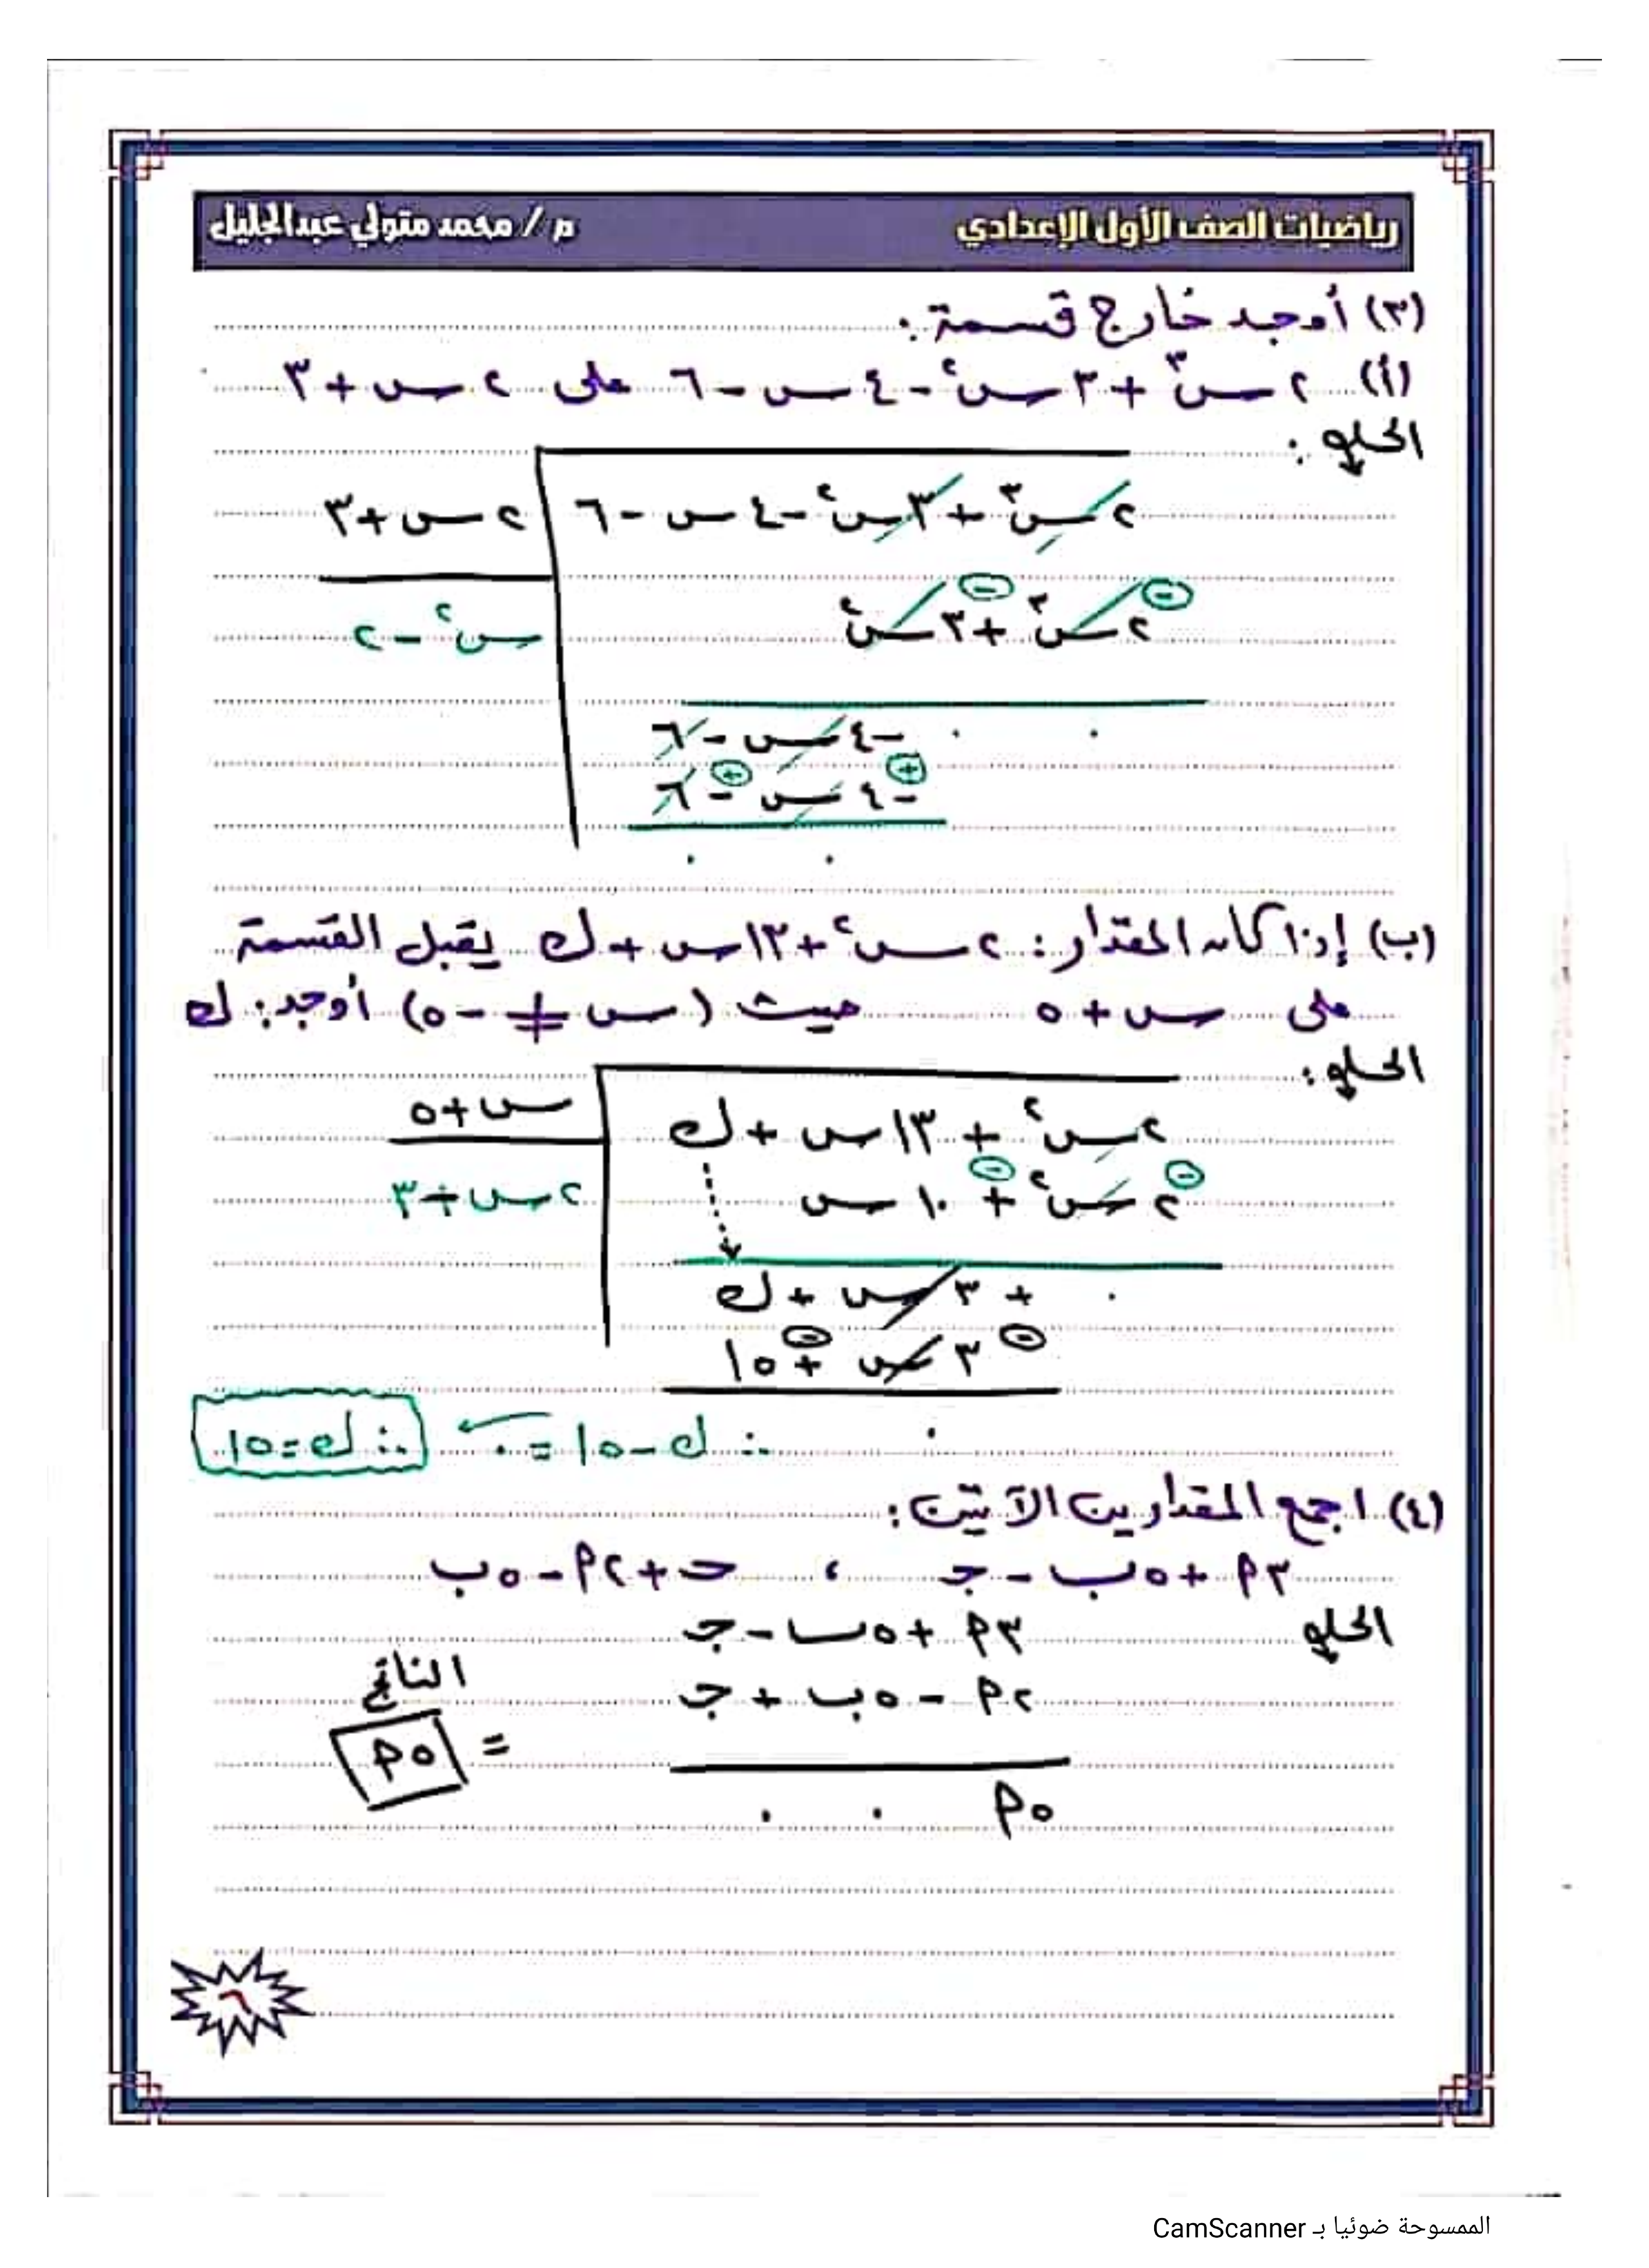 رياضيات الصف الأول الإعدادي م / محمد متولي عبدالجليل
(٣) أوجد خارج قسمة :
(أ) ٢س٣ + ٣س٢ - ٤س - ٦ على ٢س + ٣
الحل :
٢س٣ + ٣س٢ - ٤س - ٦ ٢س + ٣
٢س٣ + ٣س٢ س٢ - ٢
- ٤س - ٦
- ٤س - ٦
(ب) إذا كان المقدار : ٢س٢ + ١٣س + ك يقبل القسمة
على س + ٥ حيث (س ≠ - ٥) أوجد : ك
الحل :
٢س٢ + ١٣س + ك س + ٥
٢س٢ + ١٠س ٢س + ٣
+ ٣س + ك
٣س + ١٥
∴ ك - ١٥ = ٠ ← ∴ ك = ١٥
(٤) اجمع المقدارين الآتيين :
٣أ + ٥ب - جـ ، حـ + ٢أ - ٥ب
الحل
٣أ + ٥ب - جـ
٢أ - ٥ب + جـ الناتج
= ٥أ
٥أ ٠ ٠
٦
الممسوحة ضوئيا بـ CamScanner